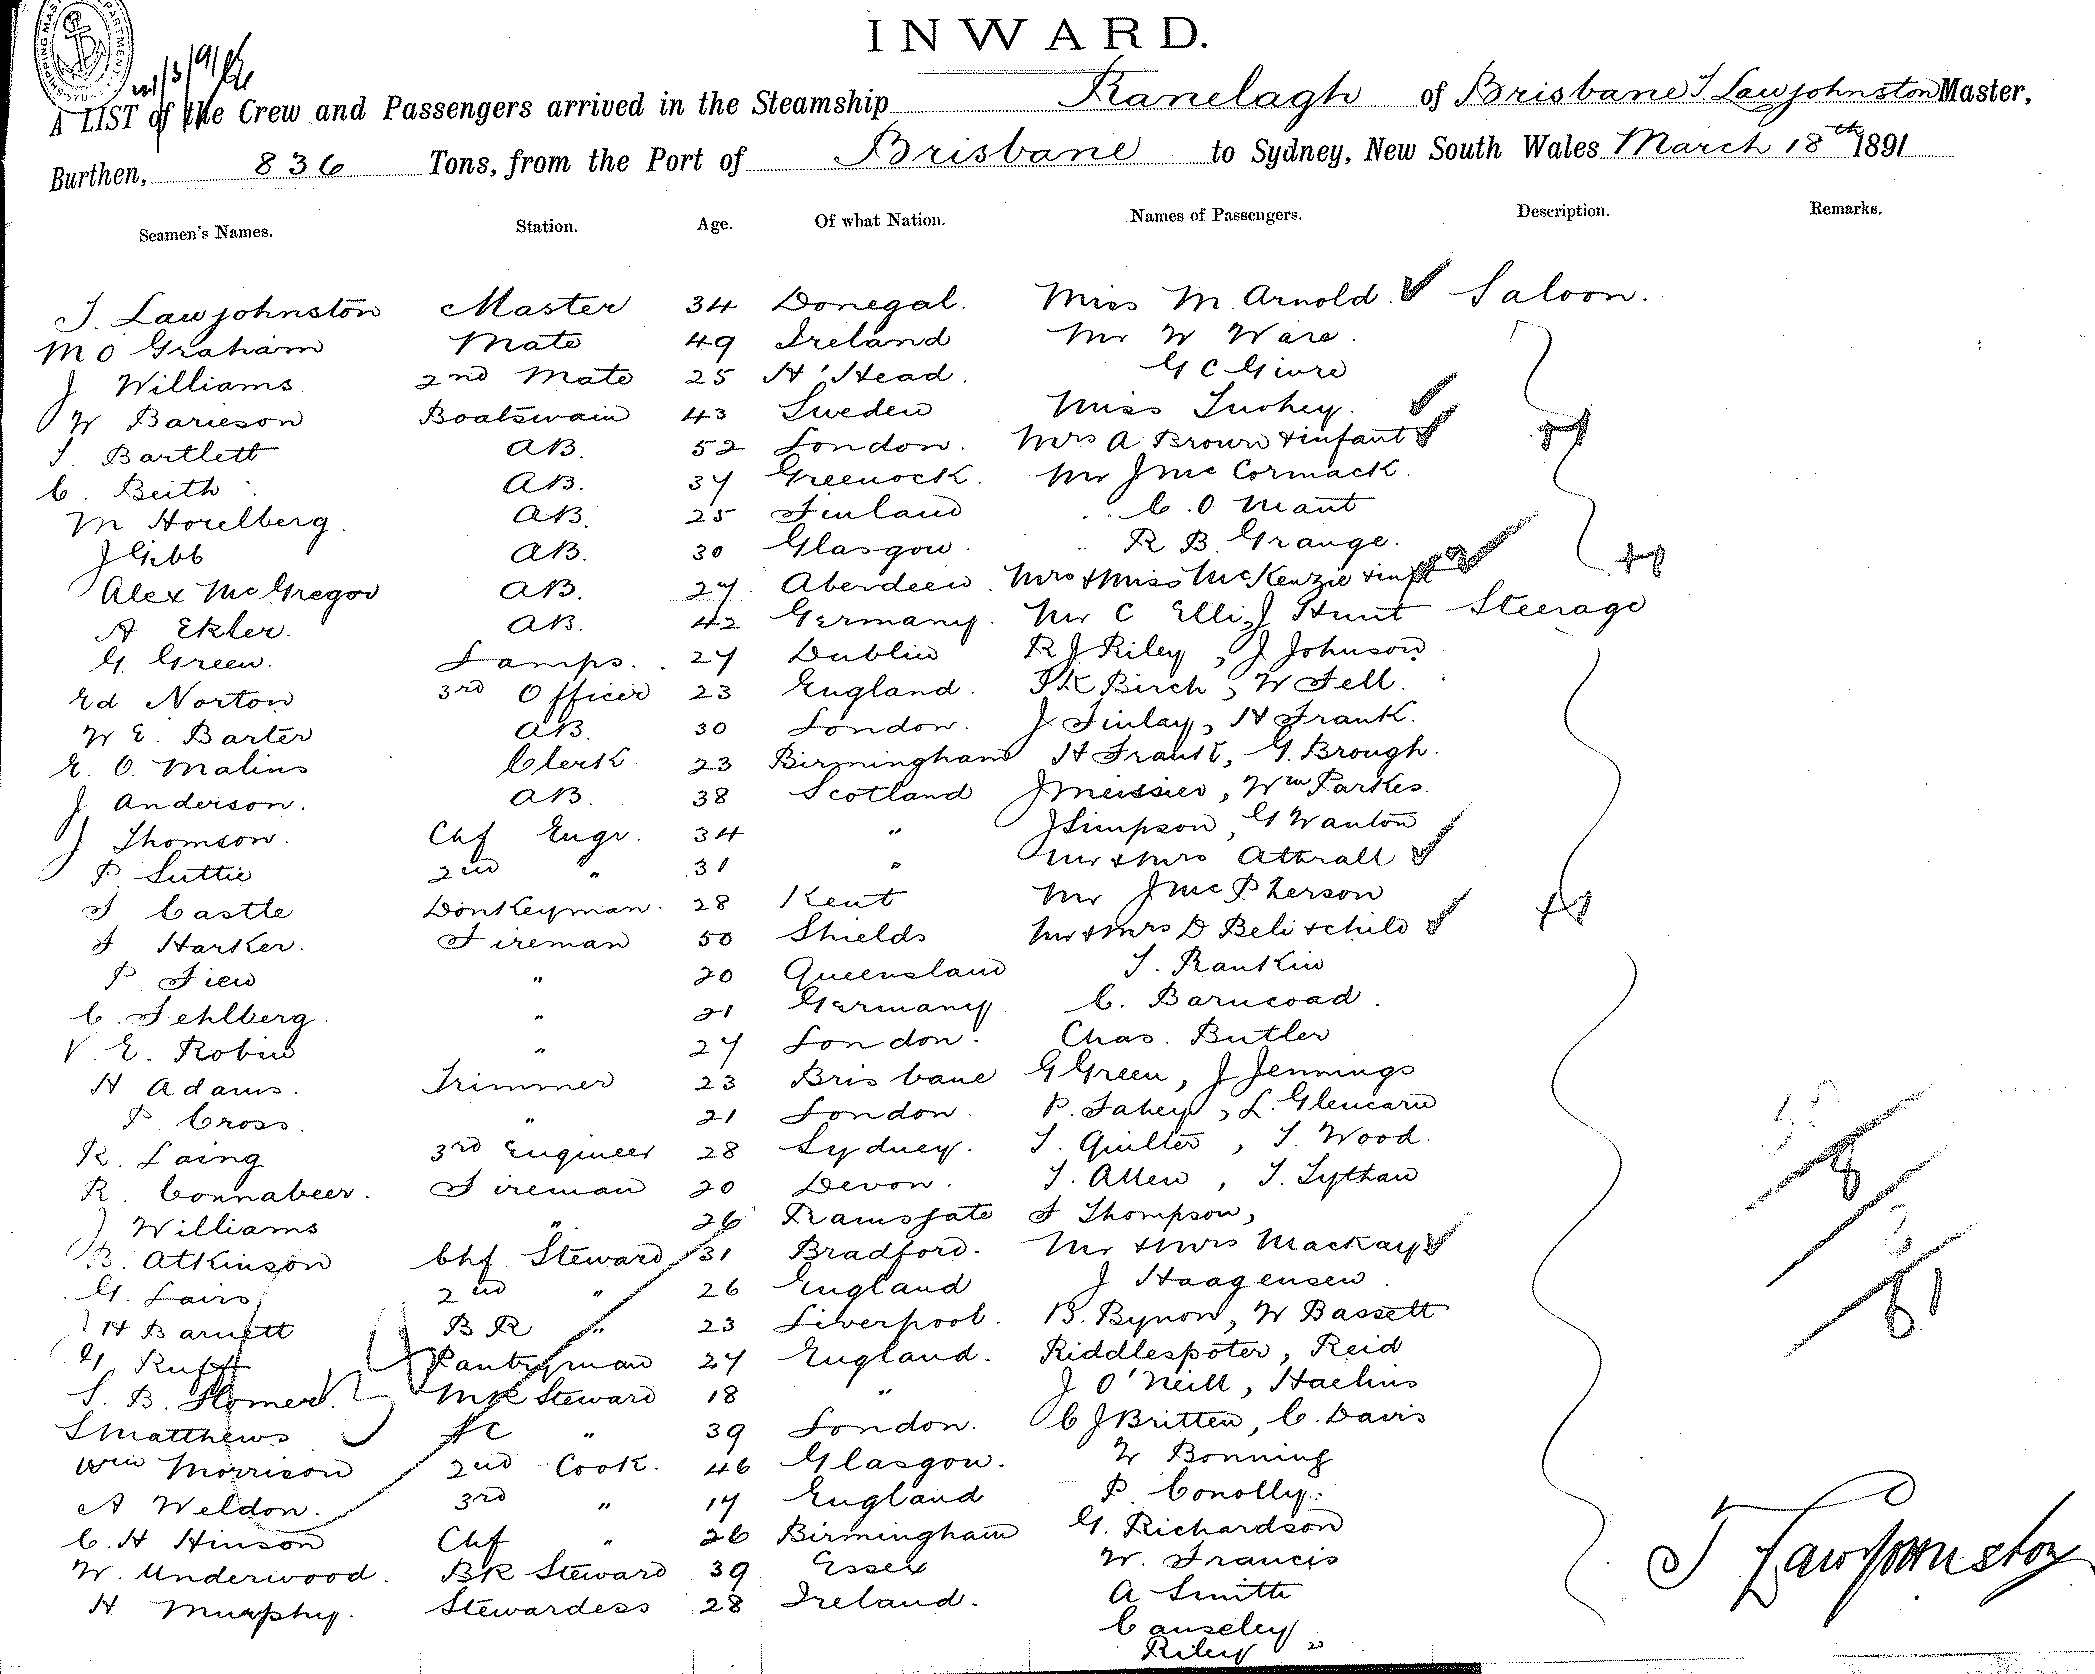 INWARD.
A LIST of the Crew and Passengers arrived in the Steamship Ranelagh of Brisbane T Lawjohnston Master,
Burthen, 836 Tons, from the Port of Brisbane to Sydney, New South Wales March 18th 1891
Seamen's Names. Station. Age. Of what Nation. Names of Passengers. Description. Remarks.
T. Lawjohnston Master 34 Donegal. Miss M. Arnold. Saloon.
M O Graham Mate 49 Ireland Mr W Ware.
J Williams 2nd Mate 25 H'Head. G C Givre
W Barieson Boatswain 43 Sweden Miss Tuohey.
T. Bartlett AB. 52 London. Mrs A Brown + infant
C. Beith AB. 37 Greenock. Mr J McCormack.
M Horelberg. AB. 25 Finland C. O Mant
J Gibb AB. 30 Glasgow. R B Grange.
Alex McGregor AB. 27. Aberdeen. Mrs + Miss McKenzie + inft
A Ekler. AB. 42 Germany. Mr C Ellis, J Hunt Steerage
G. Green. Lamps. 27 Dublin R J Riley, J Johnson
Ed Norton 3rd Officer 23 England. T K Birch, W Fell.
W E. Barter AB. 30 London. J Finlay, H Frank.
E. O. Malins Clerk. 23 Birmingham H Frank, G. Brough.
J Anderson. AB. 38 Scotland J Meissier, Wm Parkes.
J Thomson. Chf Engr. 34 " J Simpson, G Wanton
P Suttie 2nd " 31 " Mr + Mrs Attrall
T Castle Donkeyman. 28 Kent Mr J McPherson
F Harker. Fireman 50 Shields Mr + Mrs D Beli + child
P Fien " 20 Queensland T. Rankin
C. Fehlberg. " 21 Germany C. Barncoad.
V. E. Robin " 27 London. Chas. Butler
H Adams. Trimmer 23 Brisbane G Green, J Jennings
P Cross. " 21 London. P. Fahey, L. Glencarn
R. Laing 3rd Engineer 28 Sydney. T. Quilter, T. Wood.
R. Connabeer. Fireman 20 Devon. T. Allen, T. Lythan
J Williams " 26 Ramsgate F Thompson,
B. Atkinson Chf Steward 31 Bradford. Mr + Mrs Mackay
G. Lairs 2nd " 26 England J Haagensen.
H Barnett B R " 23 Liverpool. B. Bynon, W Bassett
G Ruff Pantryman 27 England. Riddlespoter, Reid
S. B. Homer. Mk Steward 18 " J O'Neill, Haelins
S Matthews FC " 39 London. C J Britten, C. Davis
Wm Morrison 2nd Cook. 46 Glasgow. W Bonning
A Weldon. 3rd " 17 England P. Conolly.
C. H Hinson Chf " 26 Birmingham G. Richardson
W. Underwood. BR Steward 39 Essex W. Francis
H Murphy. Stewardess 28 Ireland. A Smith
Causeley
Riley "
T Lawjohnston